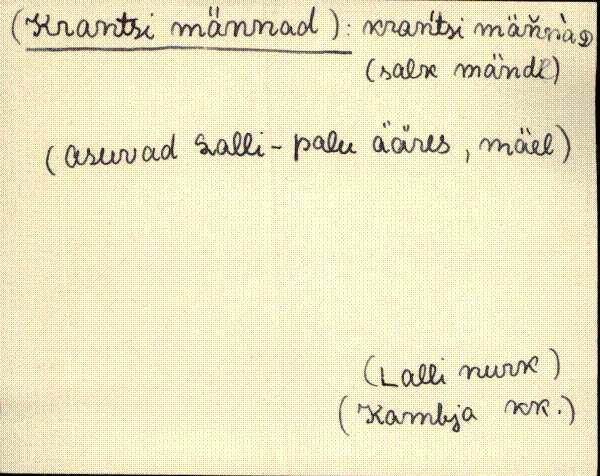 (Krantsi männad): krańtsi mäňnàD
(salk mändi)
(asuvad Lalli-palu ääres, mäel)
(Lalli nurk)
(Kambja kk.)